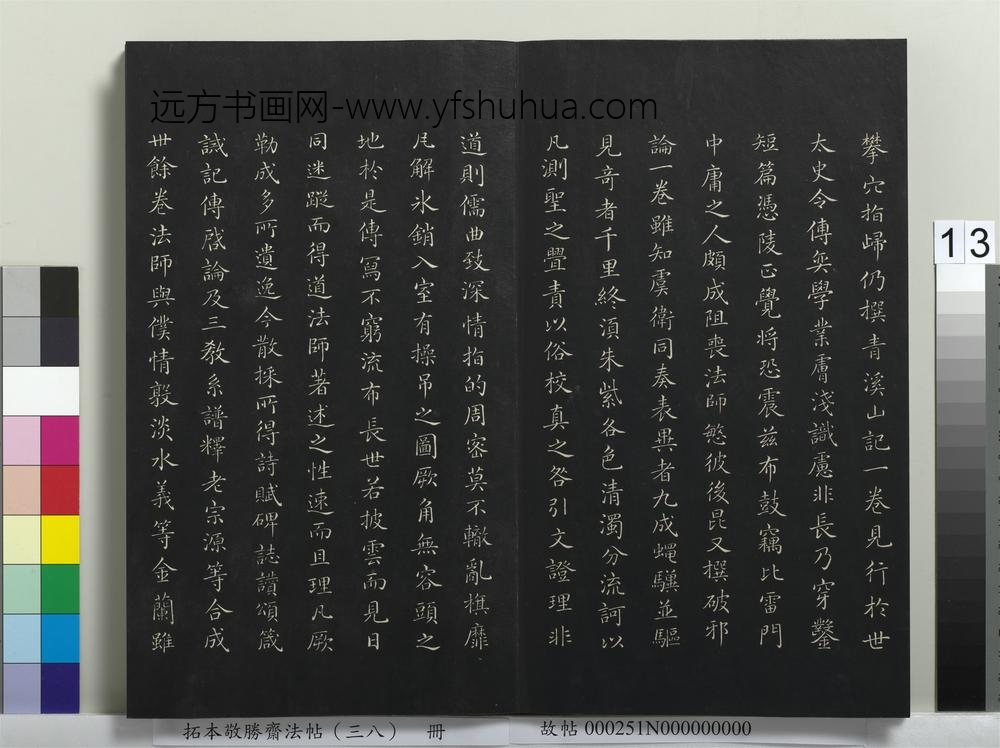 远方书画网-www.yfshuhua.com
攀穴指歸仍撰青溪山記一卷見行於世
太史令傅奕學業膚淺識慮非長乃穿鑿
短篇憑陵正覺將恐震茲布鼓竊比雷門
中庸之人頗成阻喪法師愍彼後昆又撰破邪
論一卷雖知虞衛同奏表異者九成蠅驥並驅
見奇者千里終須朱紫各色清濁分流訶以
凡測聖之亹責以俗校真之咎引文證理非
道則儒曲致深情指的周密莫不轍亂旗靡
瓦解冰銷入室有操吊之圖厥角無容頭之
地於是傳寫不窮流布長世若披雲而見日
同迷蹤而得道法師著述之性速而且理凡厥
勒成多所遺逸今散採所得詩賦碑誌讚頌箴
誡記傳啓論及三教系譜釋老宗源等合成
卅餘卷法師與僕情敦淡水義等金蘭雖
13
拓本敬勝齋法帖（三八） 冊
故帖 000251N000000000